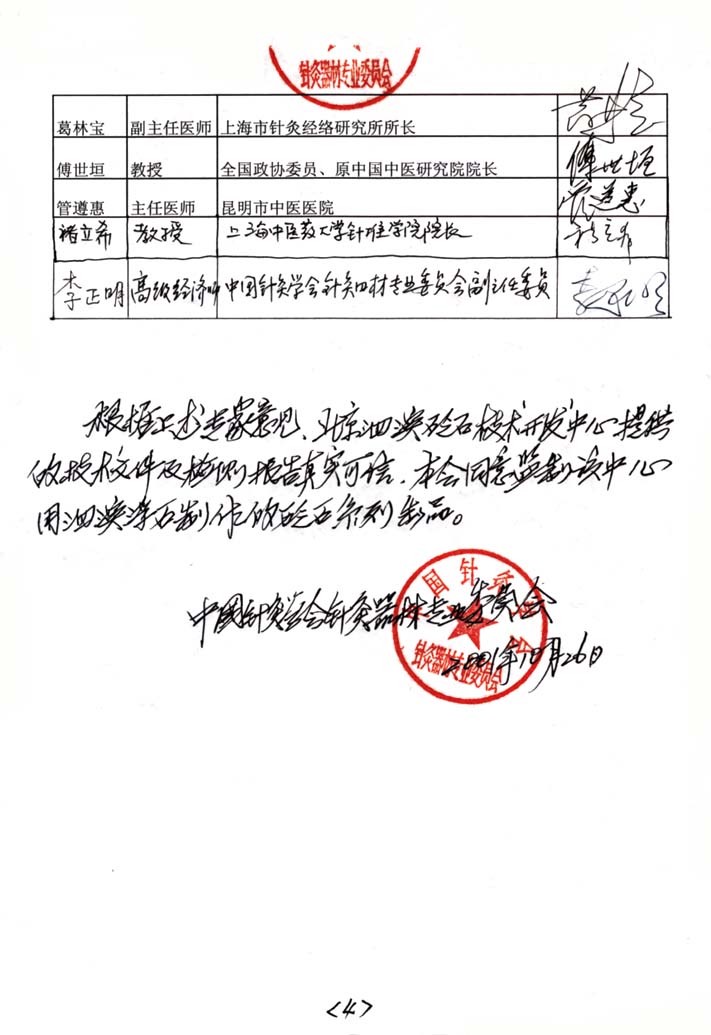 针灸器材专业委员会
葛林宝 副主任医师 上海市针灸经络研究所所长
傅世垣 教授 全国政协委员、原中国中医研究院院长 傅世垣
管遵惠 主任医师 昆明市中医医院 管遵惠
褚立希 教授 上海中医药大学针推学院院长
李正明 高级经济师 中国针灸学会针灸器材专业委员会副主任委员
根据上述专家意见、北京泗滨砭石技术开发中心提供
的技术文件及检测报告真实可信,本会同意监制该中心
用泗滨浮石制作的砭石系列制品。
中國针灸学会针灸器材专业委员会
针灸器材专业委员会
2001年10月26日
<4>